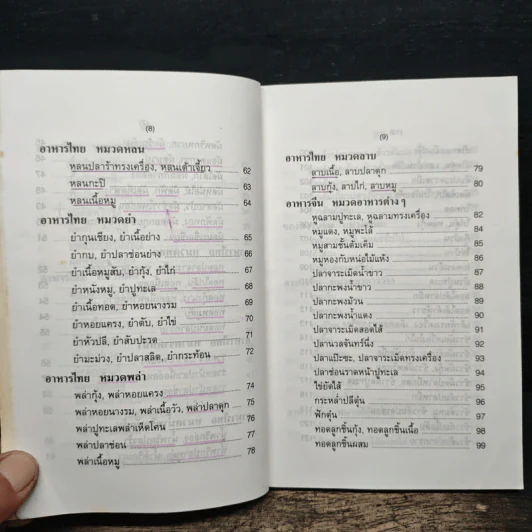 (8)
อาหารไทย หมวดหลน
หลนปลาร้าทรงเครื่อง, หลนเต้าเจี้ยว 62
หลนกะปิ 63
หลนเนื้อหมู 64
อาหารไทย หมวดยำ
ยำกุนเชียง, ยำเนื้อย่าง 65
ยำกบ, ยำปลาช่อนย่าง 66
ยำเนื้อหมูสับ, ยำกุ้ง, ยำไก่ 67
ยำหนังหมู, ยำปูทะเล 68
ยำเนื้อทอด, ยำหอยนางรม 69
ยำหอยแครง, ยำตับ, ยำไข่ 70
ยำหัวปลี, ยำสับปะรด 71
ยำมะม่วง, ยำปลาสลิด, ยำกระท้อน 72
อาหารไทย หมวดพล่า
พล่ากุ้ง, พล่าหอยแครง 74
พล่าหอยนางรม, พล่าเนื้อวัว, พล่าปลาดุก 75
พล่าปูทะเลพล่าเห็ดโคน 76
พล่าปลาช่อน 77
พล่าเนื้อหมู 78
(9)
อาหารไทย หมวดลาบ
ลาบเนื้อ, ลาบปลาดุก 79
ลาบกุ้ง, ลาบไก่, ลาบหมู 80
อาหารจีน หมวดอาหารต่างๆ
หูฉลามปูทะเล, หูฉลามทรงเครื่อง 82
หมูแดง, หมูพะโล้ 84
หมูสามชั้นต้มเค็ม 85
หมูหองกับหน่อไม้แห้ง 86
ปลาจาระเม็ดน้ำขาว 87
ปลากะพงน้ำขาว 88
ปลากะพงม้วน 89
ปลากะพงน้ำแดง 90
ปลาจาระเม็ดสอดไส้ 91
ปลานวลจันทร์นึ่ง 92
ปลาแป๊ะซะ, ปลาจาระเม็ดทรงเครื่อง 93
ปลาช่อนราดหน้าปูทะเล 94
ไข่ยัดไส้ 95
กระหล่ำปลีตุ๋น 96
ฟักตุ๋น 97
ทอดลูกชิ้นกุ้ง, ทอดลูกชิ้นเนื้อ 98
ทอดลูกชิ้นผสม 99